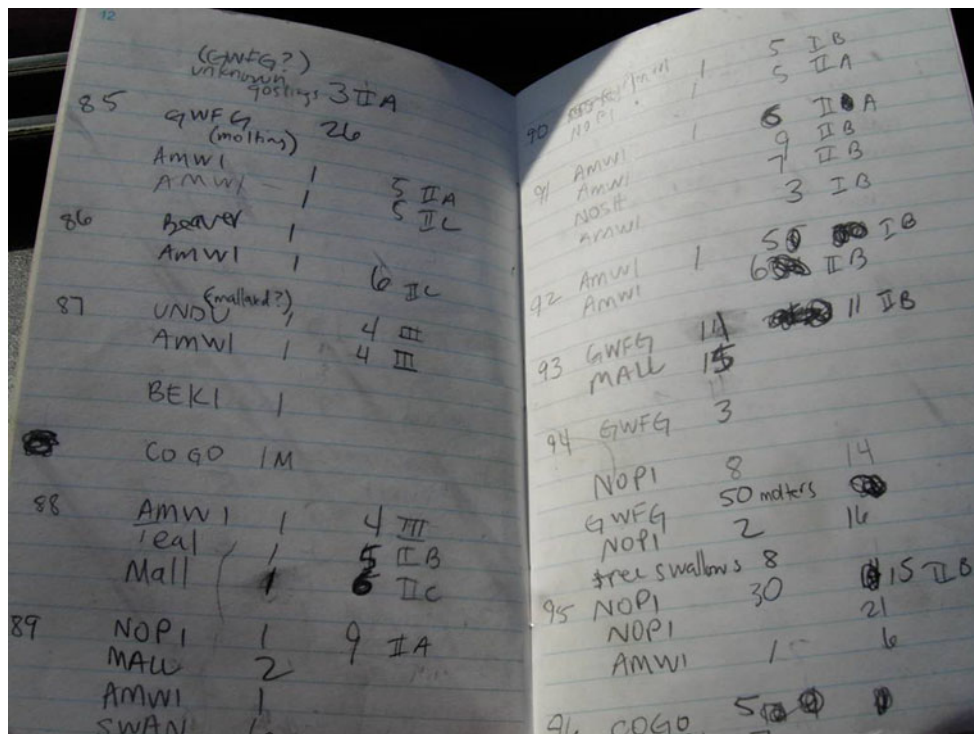 12
(GWFG?)
unknown
goslings 3 II A
85 GWFG 26
(molting)
AMWI 1
AMWI 1 5 II A
5 II C
86 Beaver 1
AMWI 1 6 II C
87 UNDU (mallard?) 1 4 III
AMWI 1 4 III
BEKI 1
COGO 1M
88 AMWI 1 4 III
Teal 1 5 II B
Mall 1 6 II C
89 NOPI 1 9 II A
MALL 2
AMWI 1
SWAN
90 1 5 I B
NOPI 1 5 II A
91 AMWI 1 6 II A
AMWI 9 II B
NOSH 7 II B
AMWI 3 I B
92 AMWI 1 5 I B
AMWI 6 II B
93 GWFG 14 11 II B
MALL 15
94 GWFG 3
NOPI 8 14
GWFG 50 molters
NOPI 2 16
tree swallows 8
95 NOPI 30 15 II B
NOPI 21
AMWI 1 6
96 COGO 5